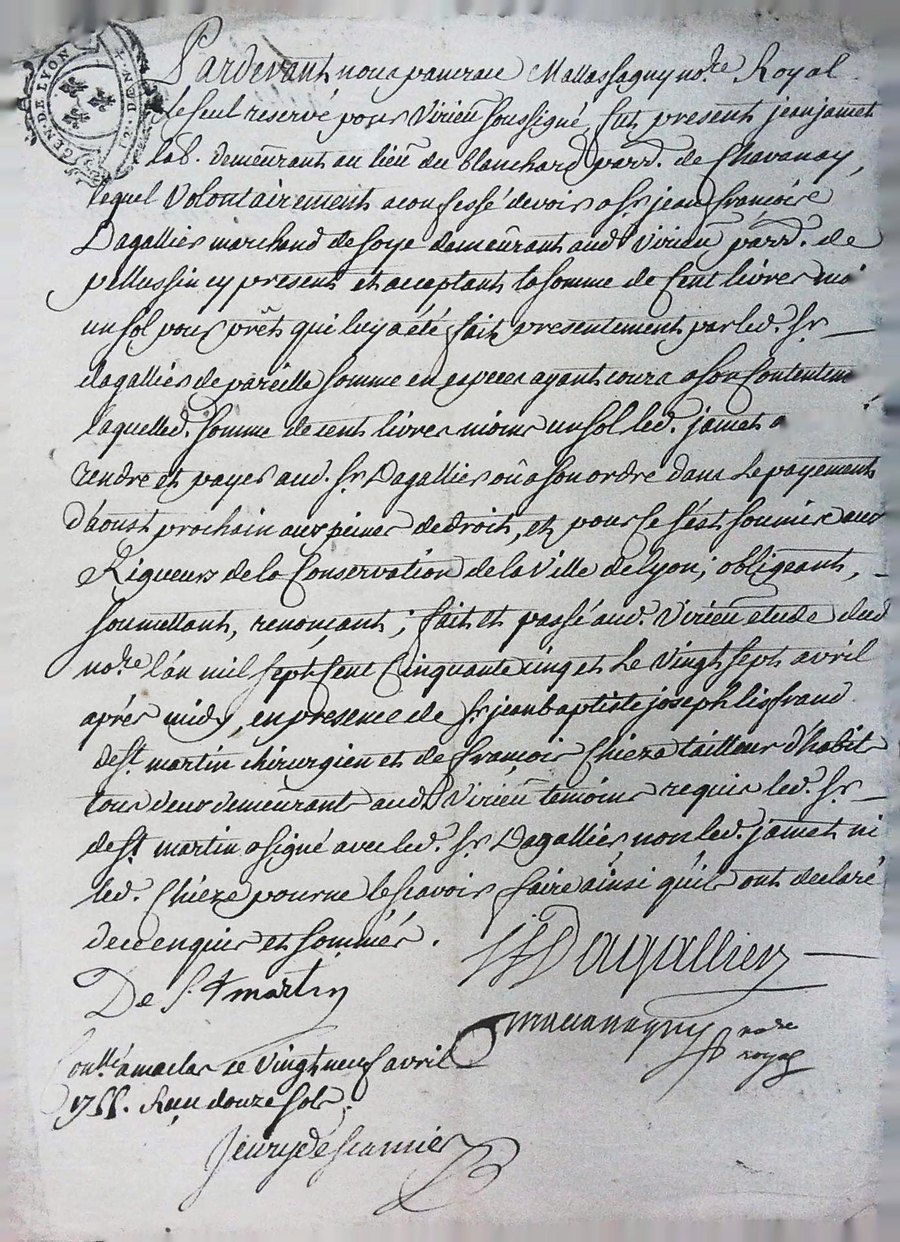 GEN. DE LYON
Pardevant nous pancrace Mallassagny no.re Royal
le seul reservé pour Virieu soussigné, fut present jean jamet
lab. demeurant au lieu du blanchard parr. de Chavanay,
lequel volontairement a confessé devoir a sr. jean françois
Dagallier marchand de soye demeurant aud. Virieu parr. de
pellussin cy present et acceptant la somme de Cent livres moi
un sol pour prêt qui luy a été fait presentement par led. Sr.
dagallier de pareille somme en especes ayant cours a son Contentem
laquelled. somme de cent livres moins un sol led. jamet
rendre et payer aud. sr. Dagallier où a son ordre dans le payement
d'aoust prochain aux peines de droit, et pour ce s'est soumis aux
Rigueurs de la Conservation de la Ville de Lyon, obligeant,
soumettant, renonçant; fait et passé aud. Virieu etude dud
no.re l'an mil sept cent Cinquante cinq et le Vingt sept avril
après midy en presence de sr. jean baptiste joseph lisfrand
de st. martin chirurgien et de françois Chieze tailleur d'habit
tous deux demeurant aud. Virieu temoins requis led. sr.
de st. martin a signé avec led. sr. Dagallier non led. jamet ni
led. Chieze pour ne le scavoir faire ainsi qu'ils ont declaré
de ce enquis et sommés.
De St martin
JF Dagallier
no.re royal
Conllé a maclas ce Vingt neuf avril
1755. Reçu douze sols.